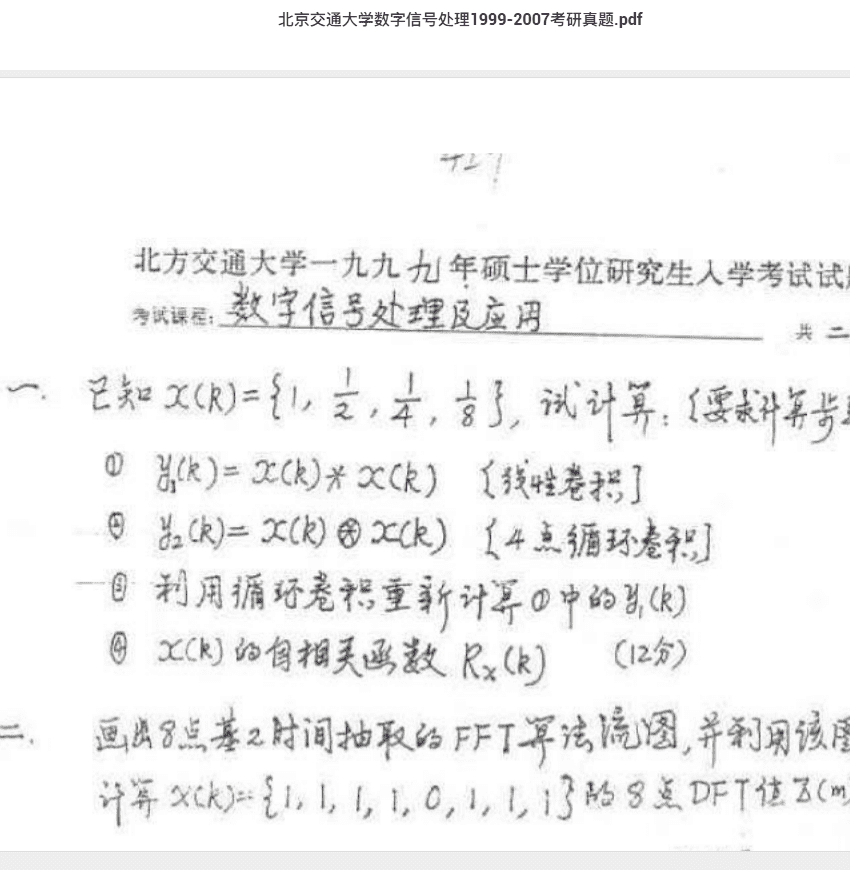 北京交通大学数字信号处理1999-2007考研真题.pdf
北方交通大学一九九九年硕士学位研究生入学考试试
考试课程: 数字信号处理及应用 共 二
一. 已知 x(k)={1, 1/2, 1/4, 1/8}, 试计算: (要求计算步
① y₁(k)= x(k)* x(k) [线性卷积]
② y₂(k)= x(k)⊛x(k) [4点循环卷积]
③ 利用循环卷积重新计算①中的y₁(k)
④ x(k)的自相关函数 Rₓ(k) (12分)
二. 画出8点基2时间抽取的FFT算法流图,并利用该
计算 x(k)={1, 1, 1, 1, 0, 1, 1, 1}的8点DFT值X(m